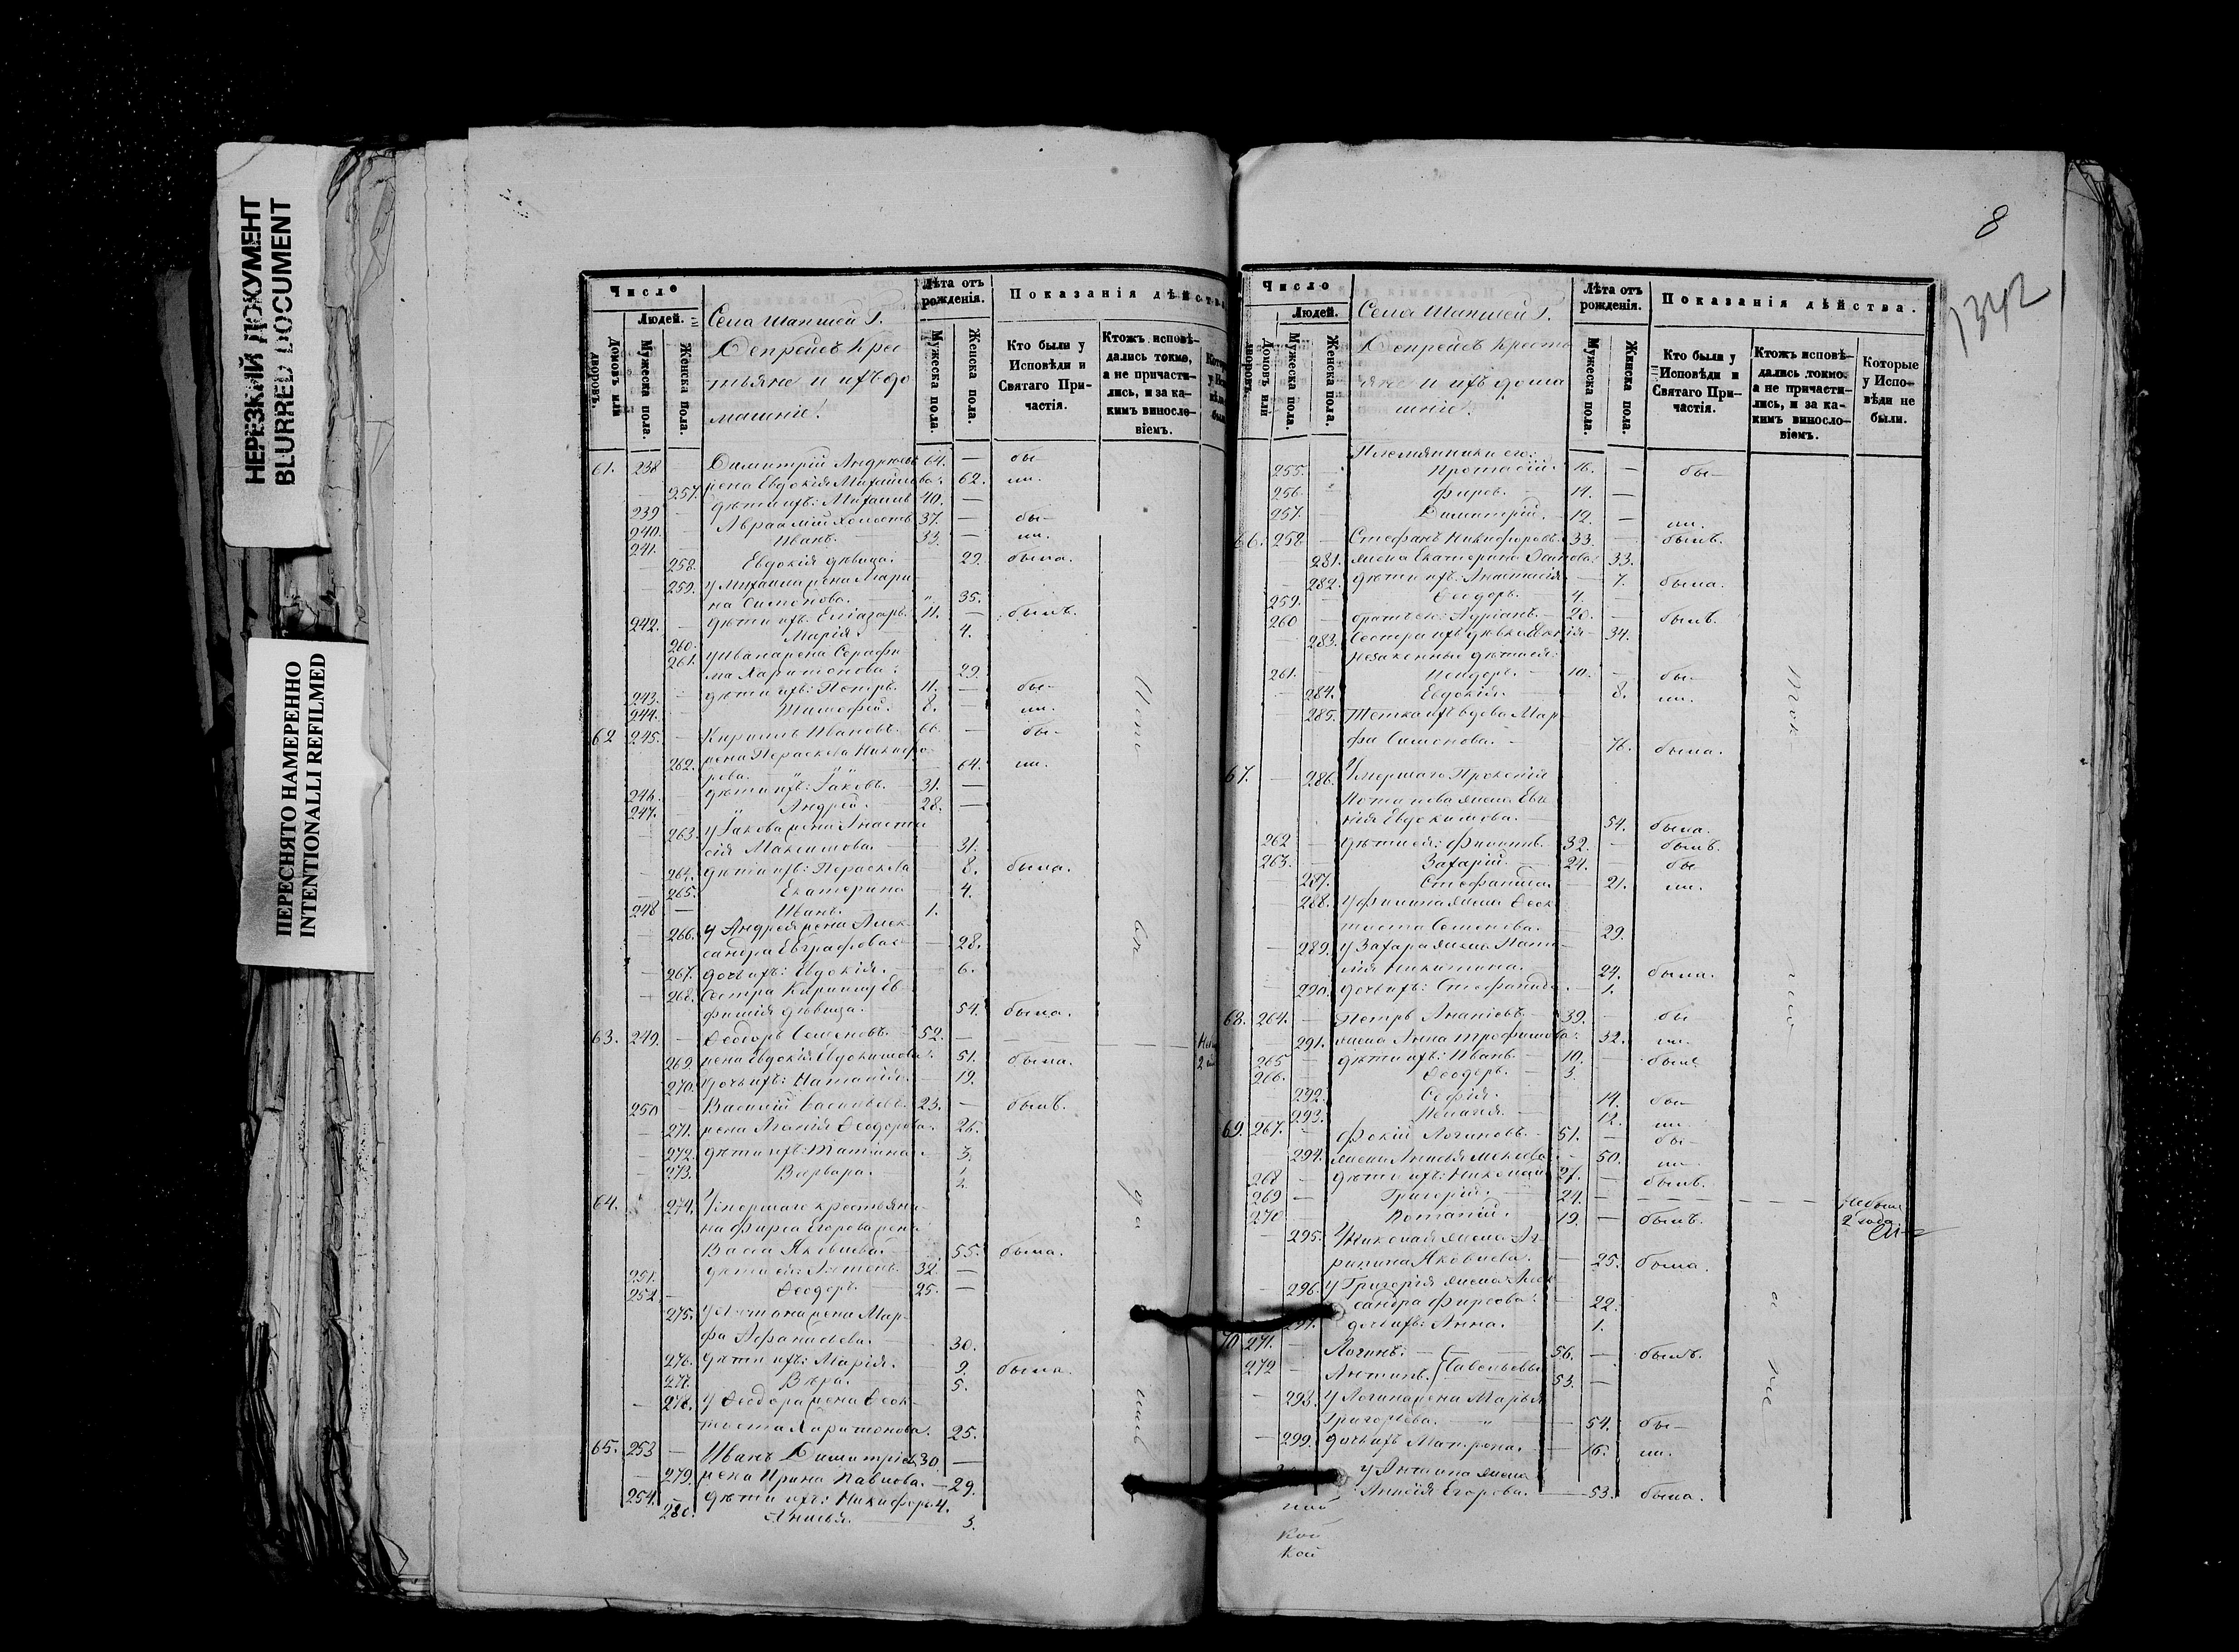 НЕРЕЗКИЙ ДОКУМЕНТ
BLURRED DOCUMENT
ПЕРЕСНЯТО НАМЕРЕННО
INTENTIONALLI REFILMED
Число
Людей.
Домовъ или дворовъ.
Мужеска пола.
Женска пола.
Села Шапшей Г.
крес-
тьяне и ихъ до
машніе.
Лѣта отъ рожденія.
Мужеска пола.
Женска пола.
Показанія дѣйства
Кто были у Исповѣди и Святаго Причастія.
Ктожъ исповѣдались токмо, а не причастились, и за какимъ винословіемъ.
61. 238 Димитрій Андреевъ 64. — бы-
257. жена Евдокія Михайлова. 62. ли.
239 — дѣти ихъ: Михаилъ 40. —
240. — Авраамій 37. — бы-
241. — Иванъ. 33. — ли.
258. Евдокія дѣвица. 29. была.
259. у Михаила жена Мари
на Симонова. 35.
242. — дѣти ихъ. Елиазаръ. 11. — былъ.
260. Марія. 4.
261. у Ивана жена Серафи
ма Харитонова. — 29.
243. — дѣти ихъ: Петръ. 11. — бы-
244. — Тимофей. 8. — ли.
62 245. — Кириллъ Ивановъ. 66. — бы-
262. жена Параскева Никифо-
рова. 64. ли.
246. — дѣти ихъ: Іаковъ. 31. —
247. — Андрей. 28. —
263. у Іакова жена Анаста
сія Максимова. — 31.
264. дѣти ихъ: Параскева 8. была.
265. Екатерина — 4.
248 — Иванъ. 1.
266. у Андрея жена Алек-
сандра Евграфова — 28.
267. дочь ихъ: Евдокія. — 6.
268. Сестра Кириллу Ев-
фимія дѣвица. 54. была.
63. 249. — Ѳеодоръ Семеновъ. 52. —
269. жена Евдокія Евдокимова. 51. была.
270. дочь ихъ: Наталія. — 19.
250 — Василій Васильевъ. 23. — былъ.
271. жена Агафія Ѳеодорова. 26.
272. дѣти ихъ: Татіана — 3.
273. Варвара. 1/2
64. 274. Умершаго крестьяни-
на Фирса Егорова жена
Васса Яковлева. — 55. была.
251. дѣти ея: Антонъ. 32. —
252. — Ѳеодоръ 25. —
275. у Антона жена Мар-
фа Афанасьева. — 30.
276. дѣти ихъ: Марія. — 9. была.
277. Вѣра. 5.
278. у Ѳеодора жена Ѳеок-
тиста Харитонова. 25.
65. 253 — Иванъ Димитріевъ 30. —
279. жена Ирина Павлова. — 29.
254. — дѣти ихъ: Никифоръ. 4.
280. Анисья. 3.
8
1342
Число
Людей.
Домовъ или дворовъ.
Мужеска пола.
Женска пола.
Села Шапшей Г.
кресть
яне и ихъ дома
шніе.
Лѣта отъ рожденія.
Мужеска пола.
Женска пола.
Показанія дѣйства.
Кто были у Исповѣди и Святаго Причастія.
Ктожъ исповѣдались токмо, а не причастились, и за какимъ винословіемъ.
Которые у Исповѣди не были.
Племянники его:
255. — Протасій. 16. — бы-
256. Фирсъ. 14. —
257. — Димитрій. 12. — ли.
66. 258. — Стефанъ Никифоровъ. 33. — былъ.
281. жена Екатерина 33.
282. дѣти ихъ: Анастасія — 7. была.
259. — Ѳеодоръ. 4.
260 — братъ его: Адріанъ. 20. — былъ.
283. Сестра ихъ дѣвка 34.
Незаконныя дѣти ея:
261. 10. — бы-
284. Евдокія. 8. ли.
285. Тетка ихъ вдова Мар-
фа Симонова. — 76. была.
67. — 286. Умершаго Прокопія
Потапова жена Евге-
нія Евдокимова. — 54. была.
262 — дѣти ея: Филиппъ. 32. — былъ.
263. — Захарій. 24. — бы
287. Стефанида. — 21. ли.
288. у Филиппа жена Ѳеок-
тиста Семенова. — 29.
289. у Захара жена Ната-
лія Никитина. 24. была.
290. дочь ихъ: Стефанида. — 1.
68. 264. — Петръ Ананіевъ 39. — бы
291. жена Анна Трофимова. 32. ли.
265 — дѣти ихъ: Иванъ. — 10. былъ.
266. — Ѳеодоръ. 3.
292. Софія. — 14. бы-
293. Пелагія. 12. ли
69. 267. — Фокій Логиновъ. — 51. — бы-
294. жена Анисья 50. ли.
268 — дѣти ихъ: Николай 27. — былъ.
269 — Григорій. 24. — Небылъ
270 Потапій. 19. — былъ. 2 года.
295. У Николая жена Аг-
рипина Яковлева. — 25. была.
296. у Григорія жена Алек-
сандра Фирсова. — 22.
297. дочь ихъ: Анна. 1.
70 271. — Логинъ. 56. — былъ.
272 — Антипъ. Савельевы 53. —
298. у Логина жена Марья
Григорьева. 54. бы-
299. дочь ихъ Матрена. — 16. ли.
у Антипа жена
Егорова. — 53. была.
кой
кой